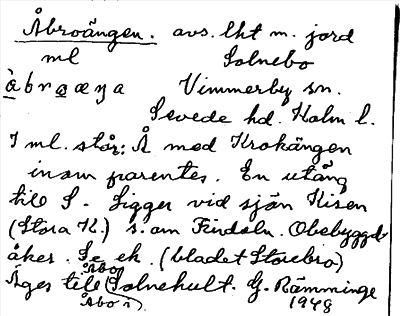 Åbroängen. avs. lht m. jord
ml Solnebo
àbrωæŋa Vimmerby sn.
Sevede hd. Kalm l.
I ml. står: Å med Krokängen
inom parentes. En utäng
till S. Ligger vid sjön Kisen
(Stora K.) s. om Findeln. Obebyggd
åker. Se ek. (bladet Storebro)
Åbo
Äges till Solnehult. G. Rämminge
Åbo 1948